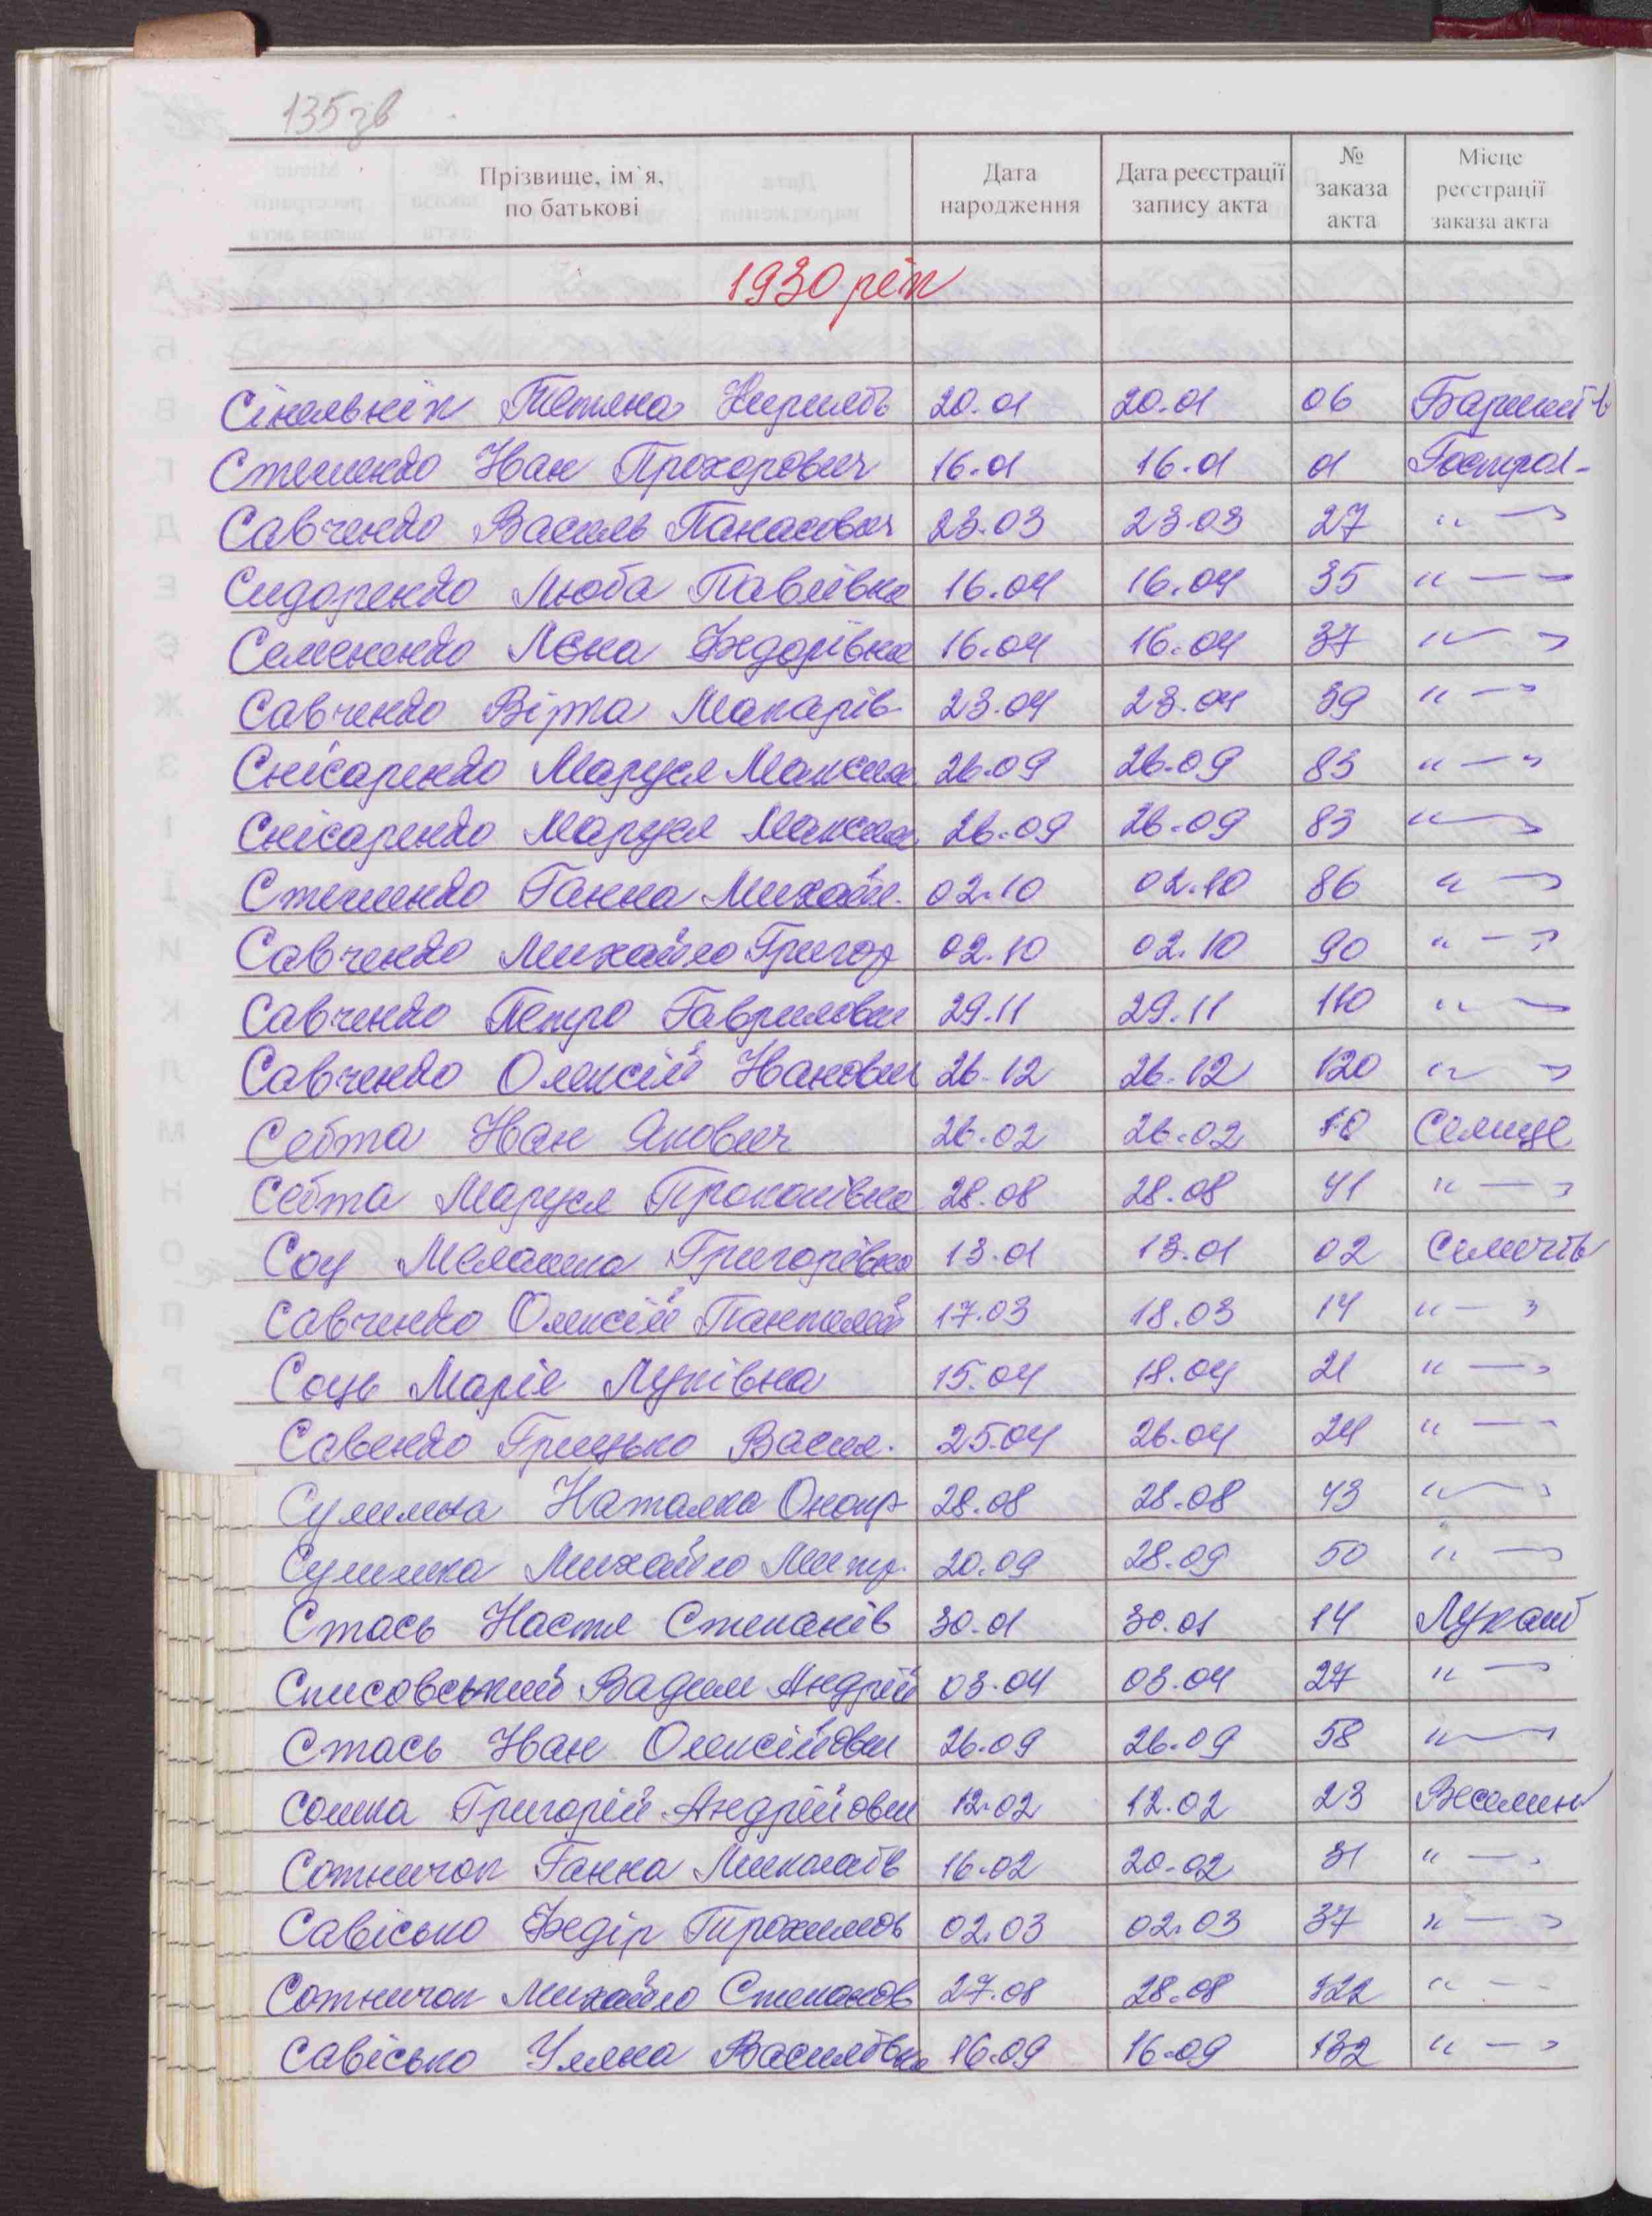 135зв
Прізвище, ім'я, по батькові | Дата народження | Дата реєстрації запису акта | № заказа акта | Місце реєстрації заказа акта
1930 рік
Сінельнік Тетяна Кирилів 20.01 20.01 06 Баришів
Стешенко Іван Прохорович 16.01 16.01 01 Гострол-
Савченко Василь Панасович 23.03 23.03 27 " —"
Сидоренко Люба Павлівна 16.04 16.04 35 " —"
Семененко Лєна Федорівна 16.04 16.04 37 " —"
Савченко Вірта Макарів 23.04 23.04 39 " —"
Снісаренко Маруся Максим. 26.09 26.09 83 " —"
Снісаренко Маруся Максим. 26.09 26.09 83 " —"
Стешенко Ганна Михайл. 02.10 02.10 86 " —"
Савченко Михайло Григор 02.10 02.10 90 " —"
Савченко Петро Гаврилович 29.11 29.11 110 " —"
Савченко Олексій Іванович 26.12 26.12 120 " —"
Себта Іван Якович 26.02 26.02 10 Селище
Себта Маруся Прокопівна 28.08 28.08 41 " —"
Соц Мелашка Григорівна 13.01 13.01 02 Селичів
Савченко Олексій Пантелей 17.03 18.03 14 " —"
Соць Марія Луківна 15.04 18.04 21 " —"
Савенко Грицько Васил. 25.04 26.04 24 " —"
Сулимка Наталка Онопр 28.08 28.08 43 " —"
Сулимка Михайло Митр. 20.09 28.09 50 " —"
Стась Настя Степанів 30.01 30.01 14 Лукаші
Списовський Вадим Андрій 03.04 03.04 27 " —"
Стась Іван Олексійович 26.09 26.09 58 " —"
Сошка Григорій Андрійович 12.02 12.02 23 Веселин
Сотничок Ганна Миколаїв 16.02 20.02 31 " —"
Савісько Федір Трохимов 02.03 02.03 37 " —"
Сотничок Михайло Степанов 27.08 28.08 122 " —"
Савісько Уляна Василівна 16.09 16.09 132 " —"